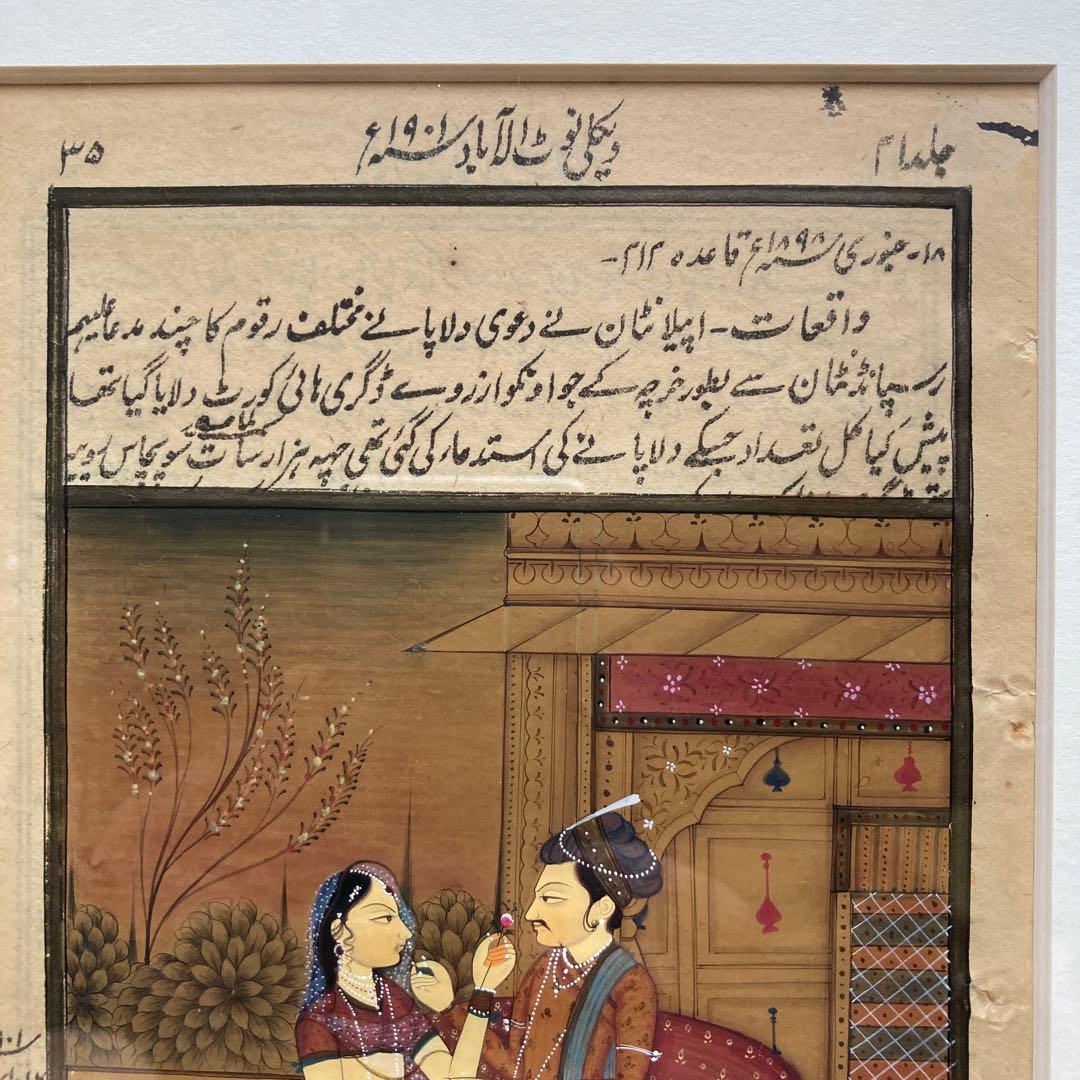 جلد ام ویکلی نوٹ الآباد سنہ ۱۹۰۱ء ۳۵
۱۸- جنوری سنہ ۱۸۹۸ء قاعدہ ۲۱۲-
واقعات - اپیلانٹان نے دعوی دلاپانے مختلف رقوم کا چند مدعا علیہم
رسپانڈنٹان سے بطور خرچہ کے جو اونکو ازروے ڈگری ہائی کورٹ دلایا گیا تھا
پیش کیا کل تعداد جسکے دلاپانے کی استدعا کی گئی تھی چہہ ہزار سات سو پچاس روپیہ